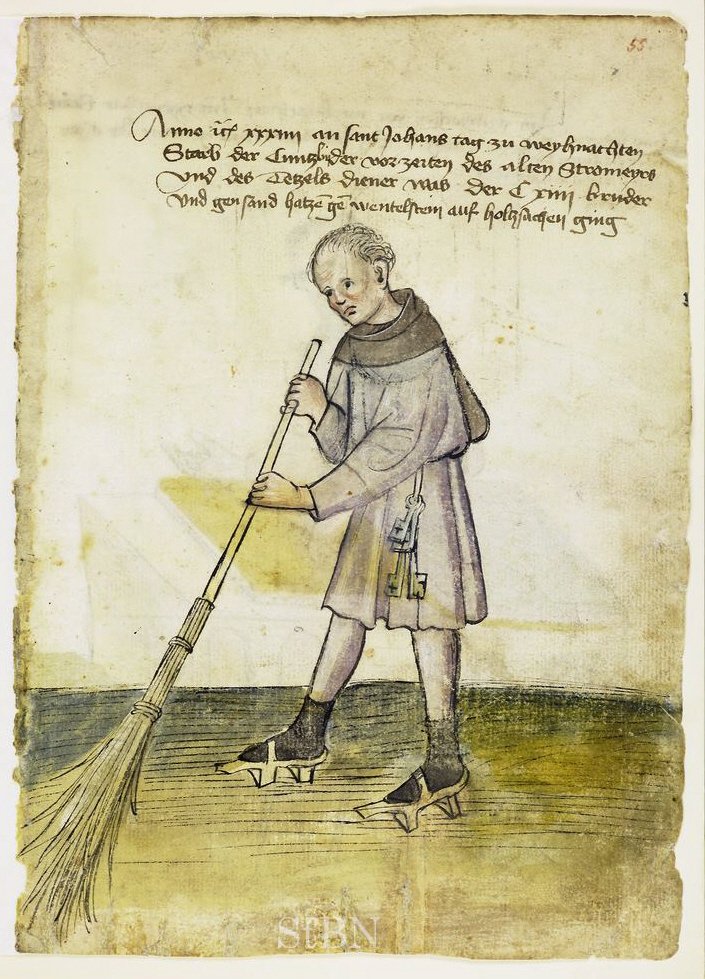 55
Anno iiijc xxxiiii an sant Johans tag zu weyhnachten
Starb der Cuntz der vor zeiten des alten Stromeyrs
Vnd des Tetzels diener was der C xiiii bruder
Vnd gen sand gen wentelstein auf ging
StBN